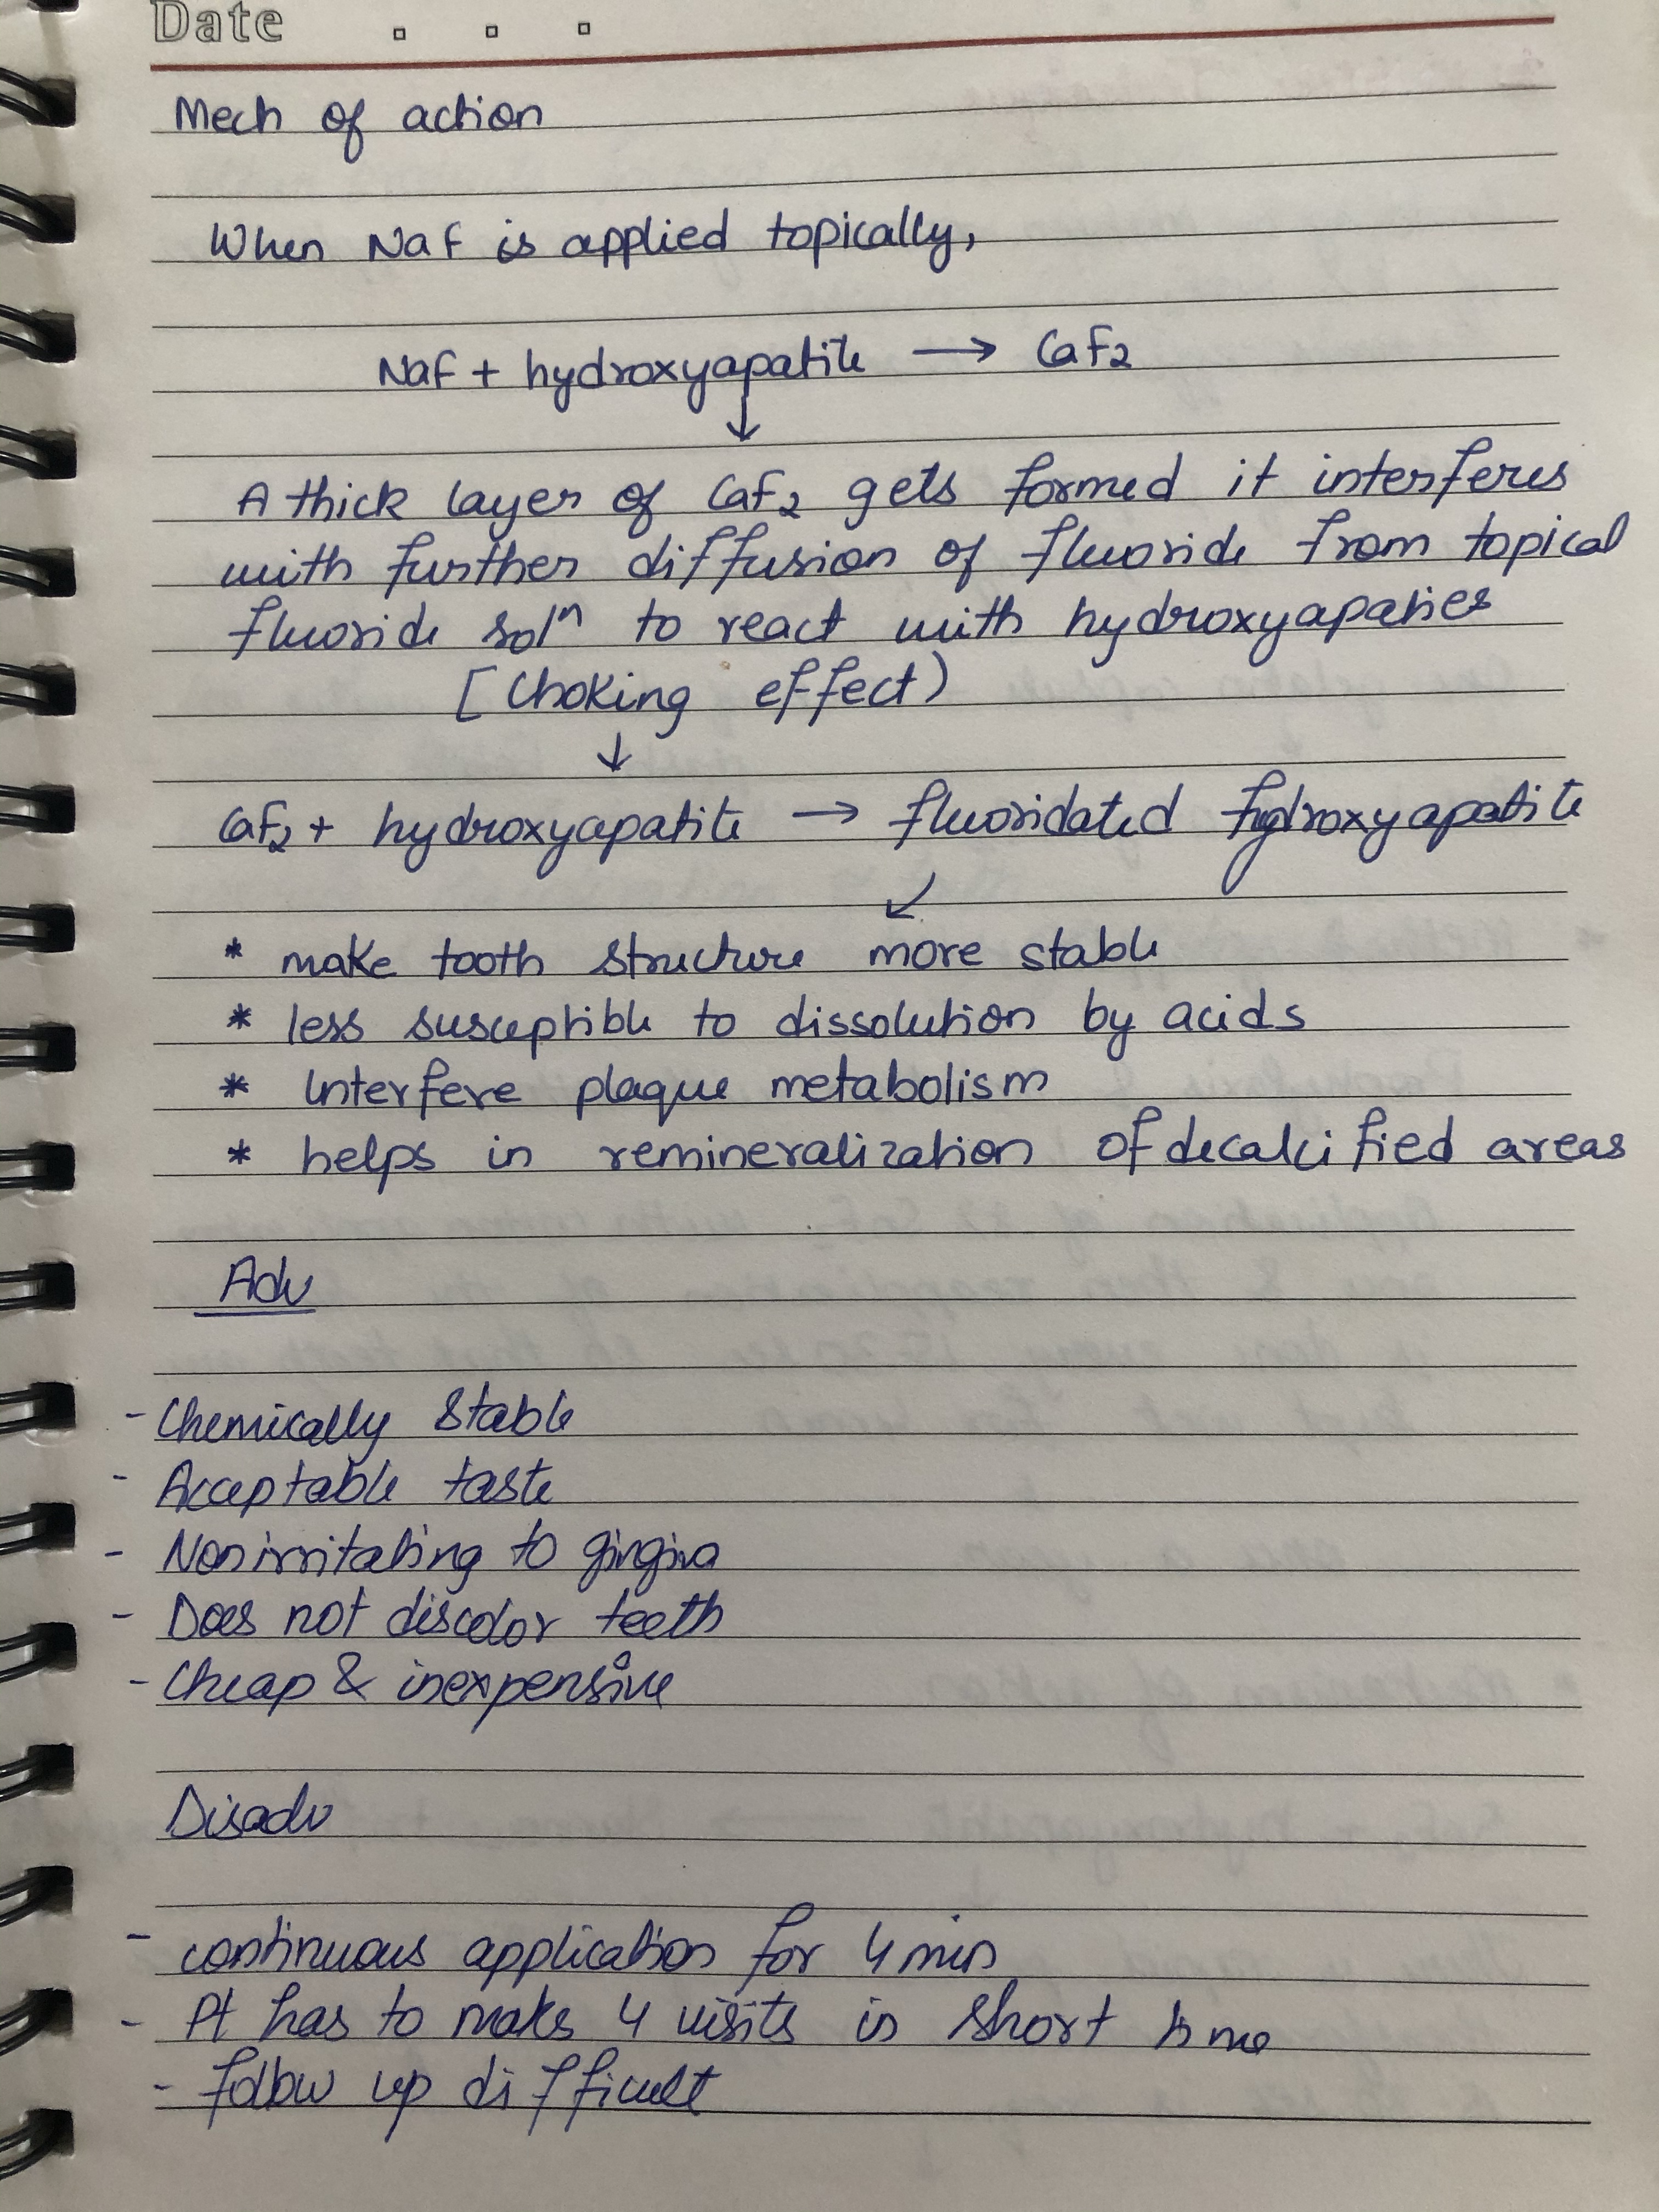 Date
Mech of action
When NaF is applied topically,
NaF + hydroxyapatite → CaF2
↓
A thick layer of CaF2 gets formed it interferes
with further diffusion of fluoride from topical
fluoride solⁿ to react with hydroxyapaties
[Choking effect)
↓
CaF2 + hydroxyapatite → fluoridated hydroxyapatite
↙
* make tooth structure more stable
* less susceptible to dissolution by acids
* Interfere plaque metabolism
* helps in remineralization of decalcified areas
Adv
- Chemically stable
- Acceptable taste
- Nonirritating to gingiva
- Does not discolor teeth
- Cheap & inexpensive
Disadv
- continuous application for 4 min
- Pt has to make 4 visits in short time
- follow up difficult